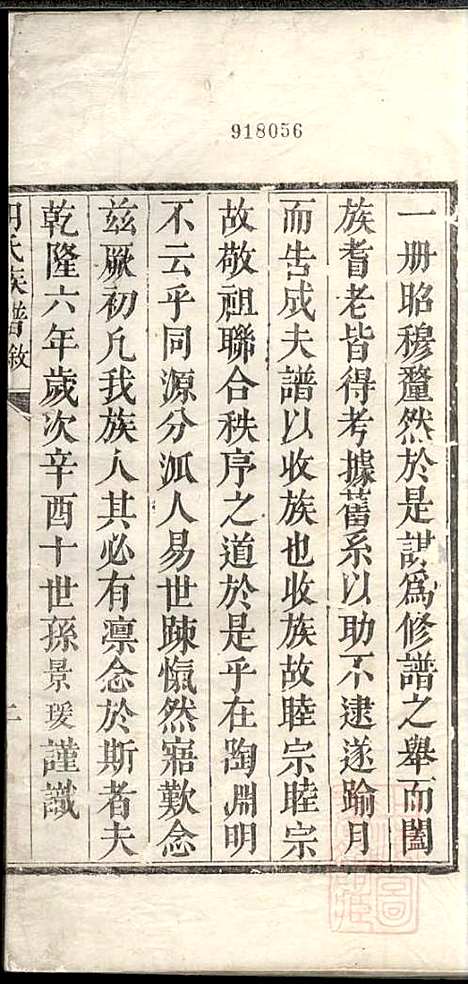 918056
一册昭穆釐然於是謀為修譜之舉而闔
族耆老皆得考據舊系以助不逮遂踰月
而告成夫譜以收族也收族故睦宗睦宗
故敬祖聯合秩序之道於是乎在陶淵明
不云乎同源分派人易世踈愾然寤歎念
兹厥初凡我族人其必有凛念於斯者夫
乾隆六年歲次辛酉十世孫景瑗謹識
氏族譜敘
二